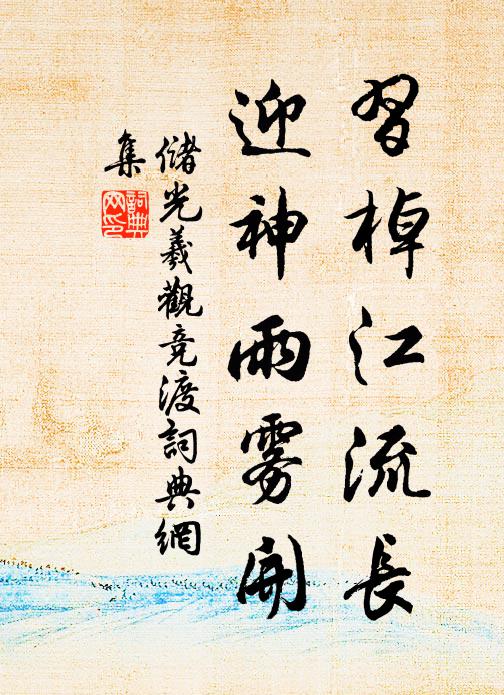 習棹江流長
迎神雨雾開
儲光羲觀竞渡詞典網
集
詞典
网印